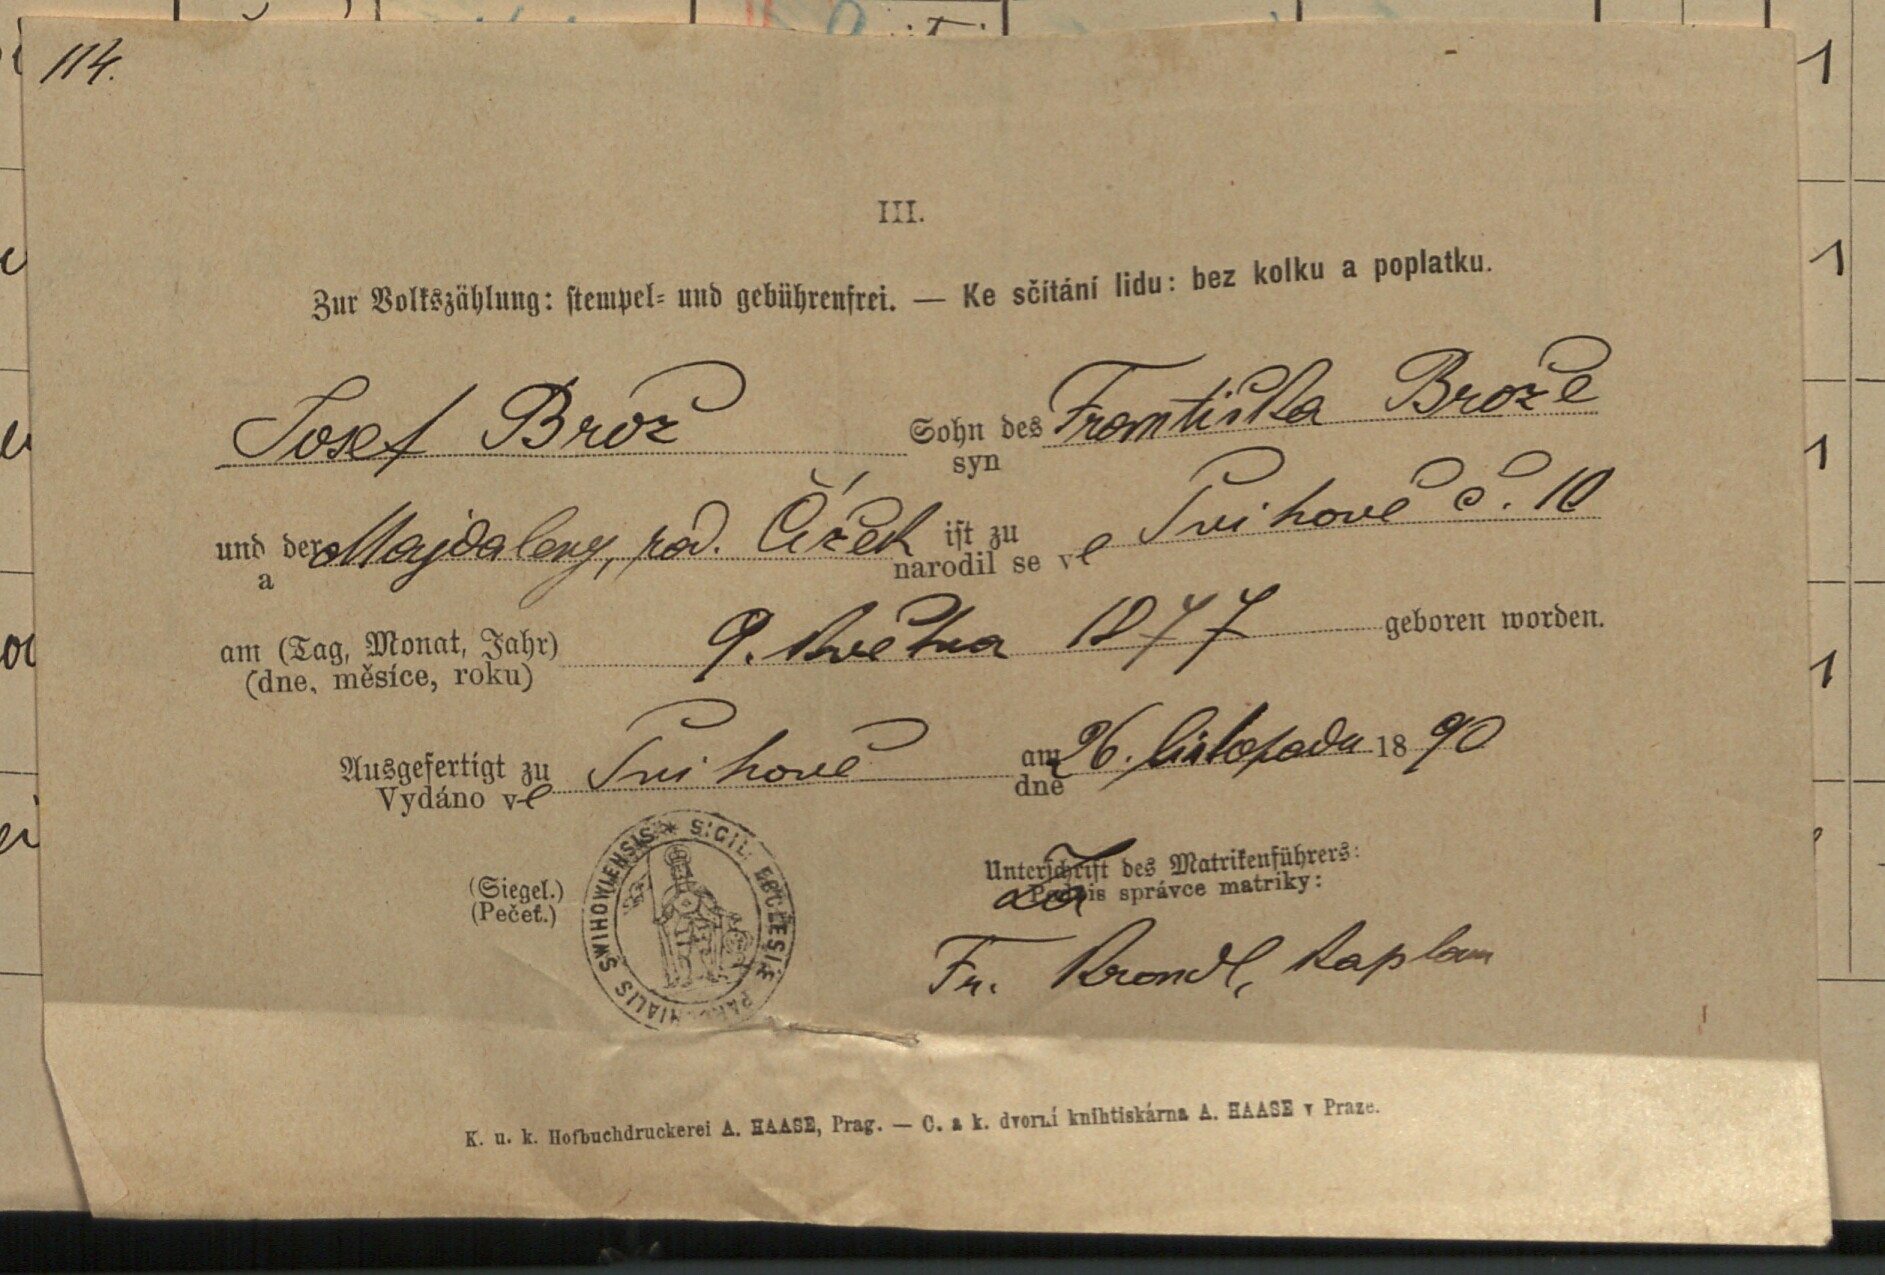 114.
III.
Zur Volkszählung: stempel- und gebührenfrei. — Ke sčítání lidu: bez kolku a poplatku.
Josef Brož Sohn des Františka Brože
syn
und der Majdaleny, roz. Čížek ist zu Švihově č. 10
a narodil se ve
am (Tag, Monat, Jahr) 9. května 1877 geboren worden.
(dne, měsíce, roku)
Ausgefertigt zu Švihově am 26. listopadu 1890
Vydáno ve dne
(Siegel.) Unterschrift des Matrikenführers:
(Pečeť.) Podpis správce matriky:
Za
Fr. Kaplan
SIGIL. ECCLESIÆ PAROCHIALIS SWIHOWIENSIS
K. u. k. Hofbuchdruckerei A. HAASE, Prag. — C. a k. dvorní knihtiskárna A. HAASE v Praze.
1
1
1
1